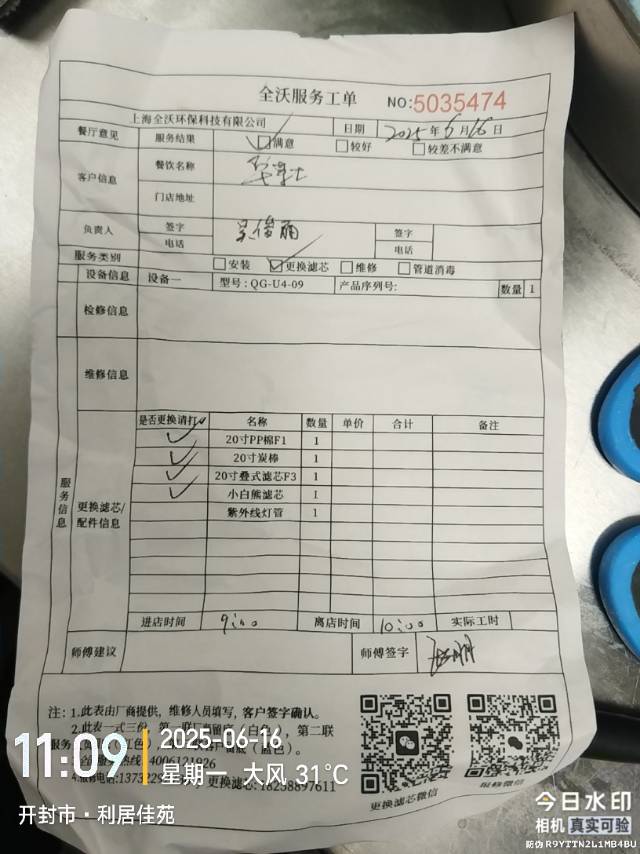 全沃服务工单 NO:5035474
上海全沃环保科技有限公司 日期 2025年6月16日
餐厅意见 服务结果 满意 较好 较差不满意
客户信息 餐饮名称 华莱士
门店地址
负责人 签字 签字
电话 电话
服务类别 安装 更换滤芯 维修 管道消毒
设备信息 设备一 型号:QG-U4-09 产品序列号: 数量 1
检修信息
维修信息
服务信息
更换滤芯/配件信息
是否更换请打✓ 名称 数量 单价 合计 备注
✓ 20寸PP棉F1 1
✓ 20寸炭棒 1
✓ 20寸叠式滤芯F3 1
✓ 小白熊滤芯 1
紫外线灯管 1
进店时间 9:00 离店时间 10:00 实际工时
师傅建议 师傅签字
注:1.此表由厂商提供,维修人员填写,客户签字确认。
2.此表一式三份,第一联厂商留底(白色),第二联
4006121926
4.维修电话:13732 更换滤芯:18238897611
更换滤芯微信 报修微信
11:09 2025-06-16
星期一 大风 31℃
开封市·利居佳苑
今日水印
相机 真实可验
防伪 R9YTTN2L1MB4BU